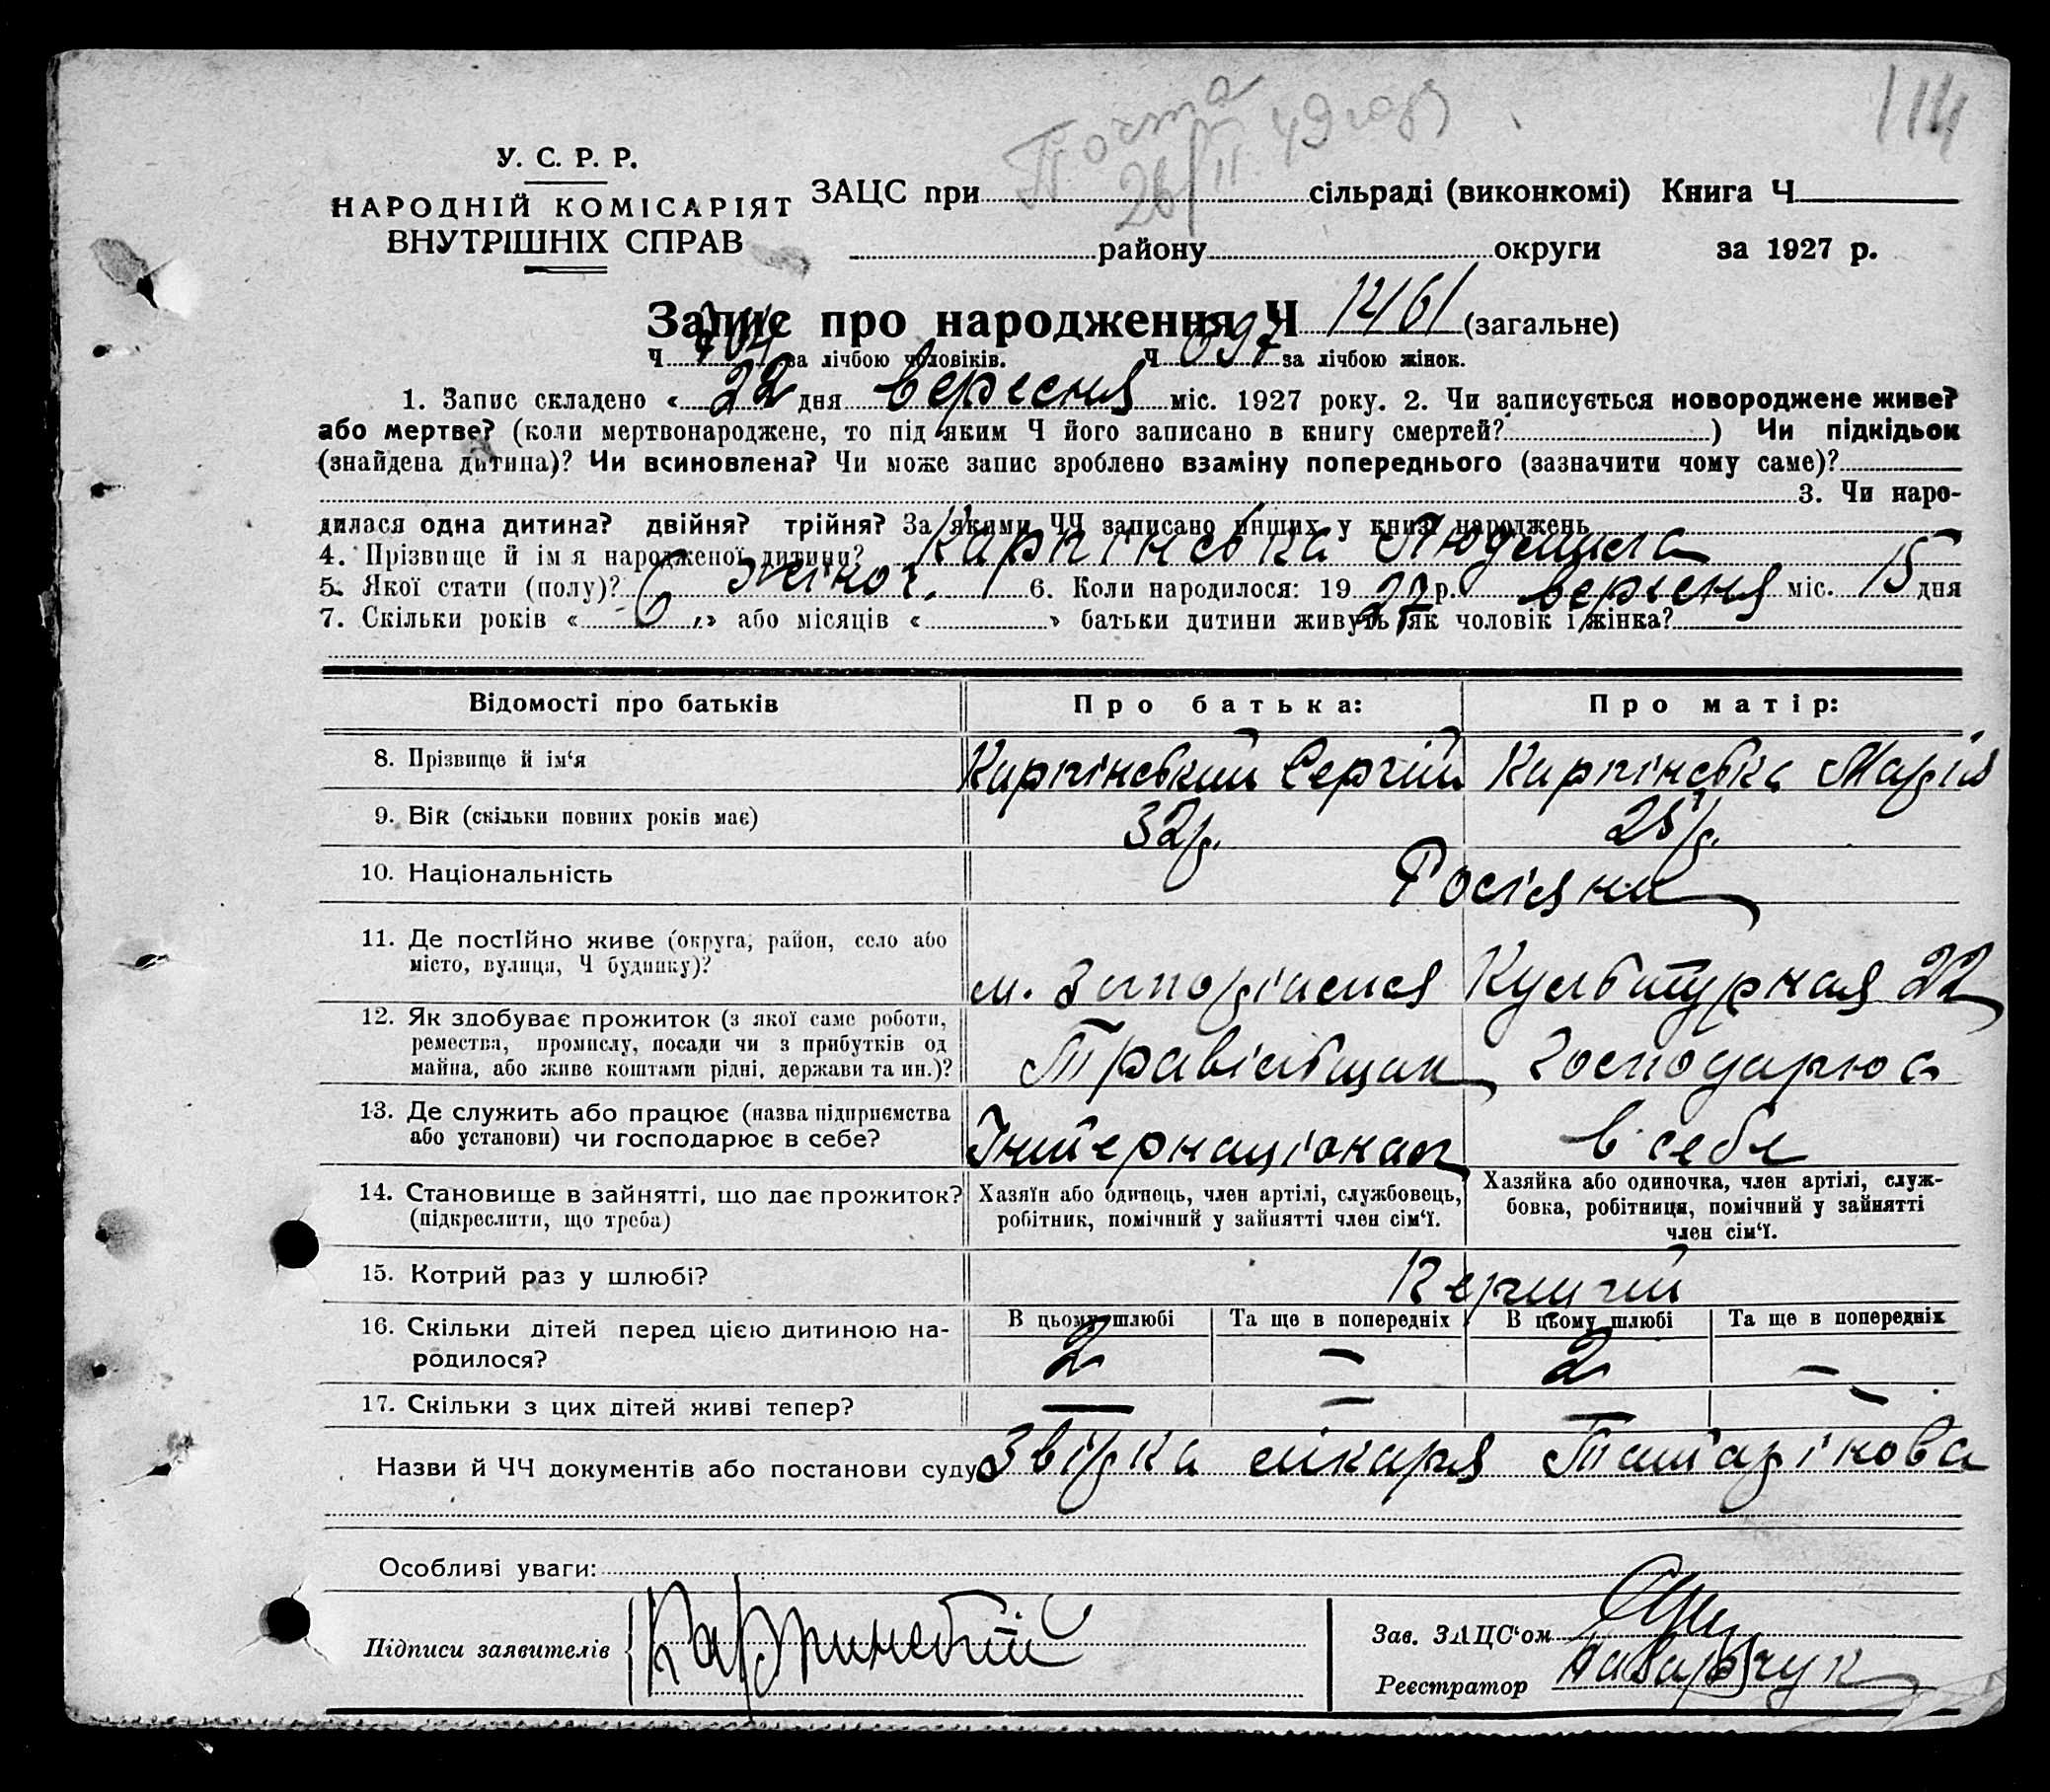 114
Почта
26/II 49 году
У. С. Р. Р.
НАРОДНІЙ КОМІСАРІЯТ
ВНУТРІШНІХ СПРАВ
ЗАЦС при сільраді (виконкомі) Книга Ч
району округи за 1927 р.
Запис про народження Ч 1461 (загальне)
Ч 764 за лічбою чоловіків. Ч 697 за лічбою жінок.
1. Запис складено « 22 дня вересня міс. 1927 року. 2. Чи записується новороджене живе?
або мертве? (коли мертвонароджене, то під яким Ч його записано в книгу смертей? ) Чи підкідьок
(знайдена дитина)? Чи всиновлена? Чи може запис зроблено взаміну попереднього (зазначити чому саме)?
3. Чи наро-
дилася одна дитина? двійня? трійня? За якими ЧЧ записано инших у книзі народжень
4. Прізвище й ім я народженої дитини? Карпінська Людмила
5. Якої стати (полу)? жіноч. 6. Коли народилося: 19 27 р. вересня міс. 15 дня
7. Скільки років « 6 » або місяців « » батьки дитини живуть як чоловік і жінка?
Відомості про батьків Про батька: Про матір:
8. Прізвище й ім‘я Карпінський Сергій Карпінська Марія
9. Вік (скільки повних років має) 32 р. 25 р.
10. Національність Росіяни
11. Де постІйно живе (округа, район, село або
місто, вулиця, Ч будинку)? м. Запоріжжя Культурная 22
12. Як здобуває прожиток (з якої саме роботи,
ремества, промислу, посади чи з прибутків од
майна, або живе коштами рідні, держави та ин.)? Травільщик Господарює
13. Де служить або працює (назва підприємства
або установи) чи господарює в себе? Інтернаціонал в себе
14. Становище в зайнятті, що дає прожиток?
(підкреслити, що треба)
Хазяїн або одинець, член артілі, службовець,
робітник, помічний у зайнятті член сім‘ї.
Хазяйка або одиночка, член артілі, служ-
бовка, робітниця, помічний у зайнятті
член сім‘ї.
15. Котрий раз у шлюбі? Перший
В цьому шлюбі Та ще в попередніх В цьому шлюбі Та ще в попередніх
16. Скільки дітей перед цією дитиною на-
родилося? 2 – 2 –
17. Скільки з цих дітей живі тепер? – – – –
Назви й ЧЧ документів або постанови суду Звірка лікаря Татарінова
Особливі уваги:
Підписи заявителів Карпинский
Зав. ЗАЦС‘ом
Реєстратор